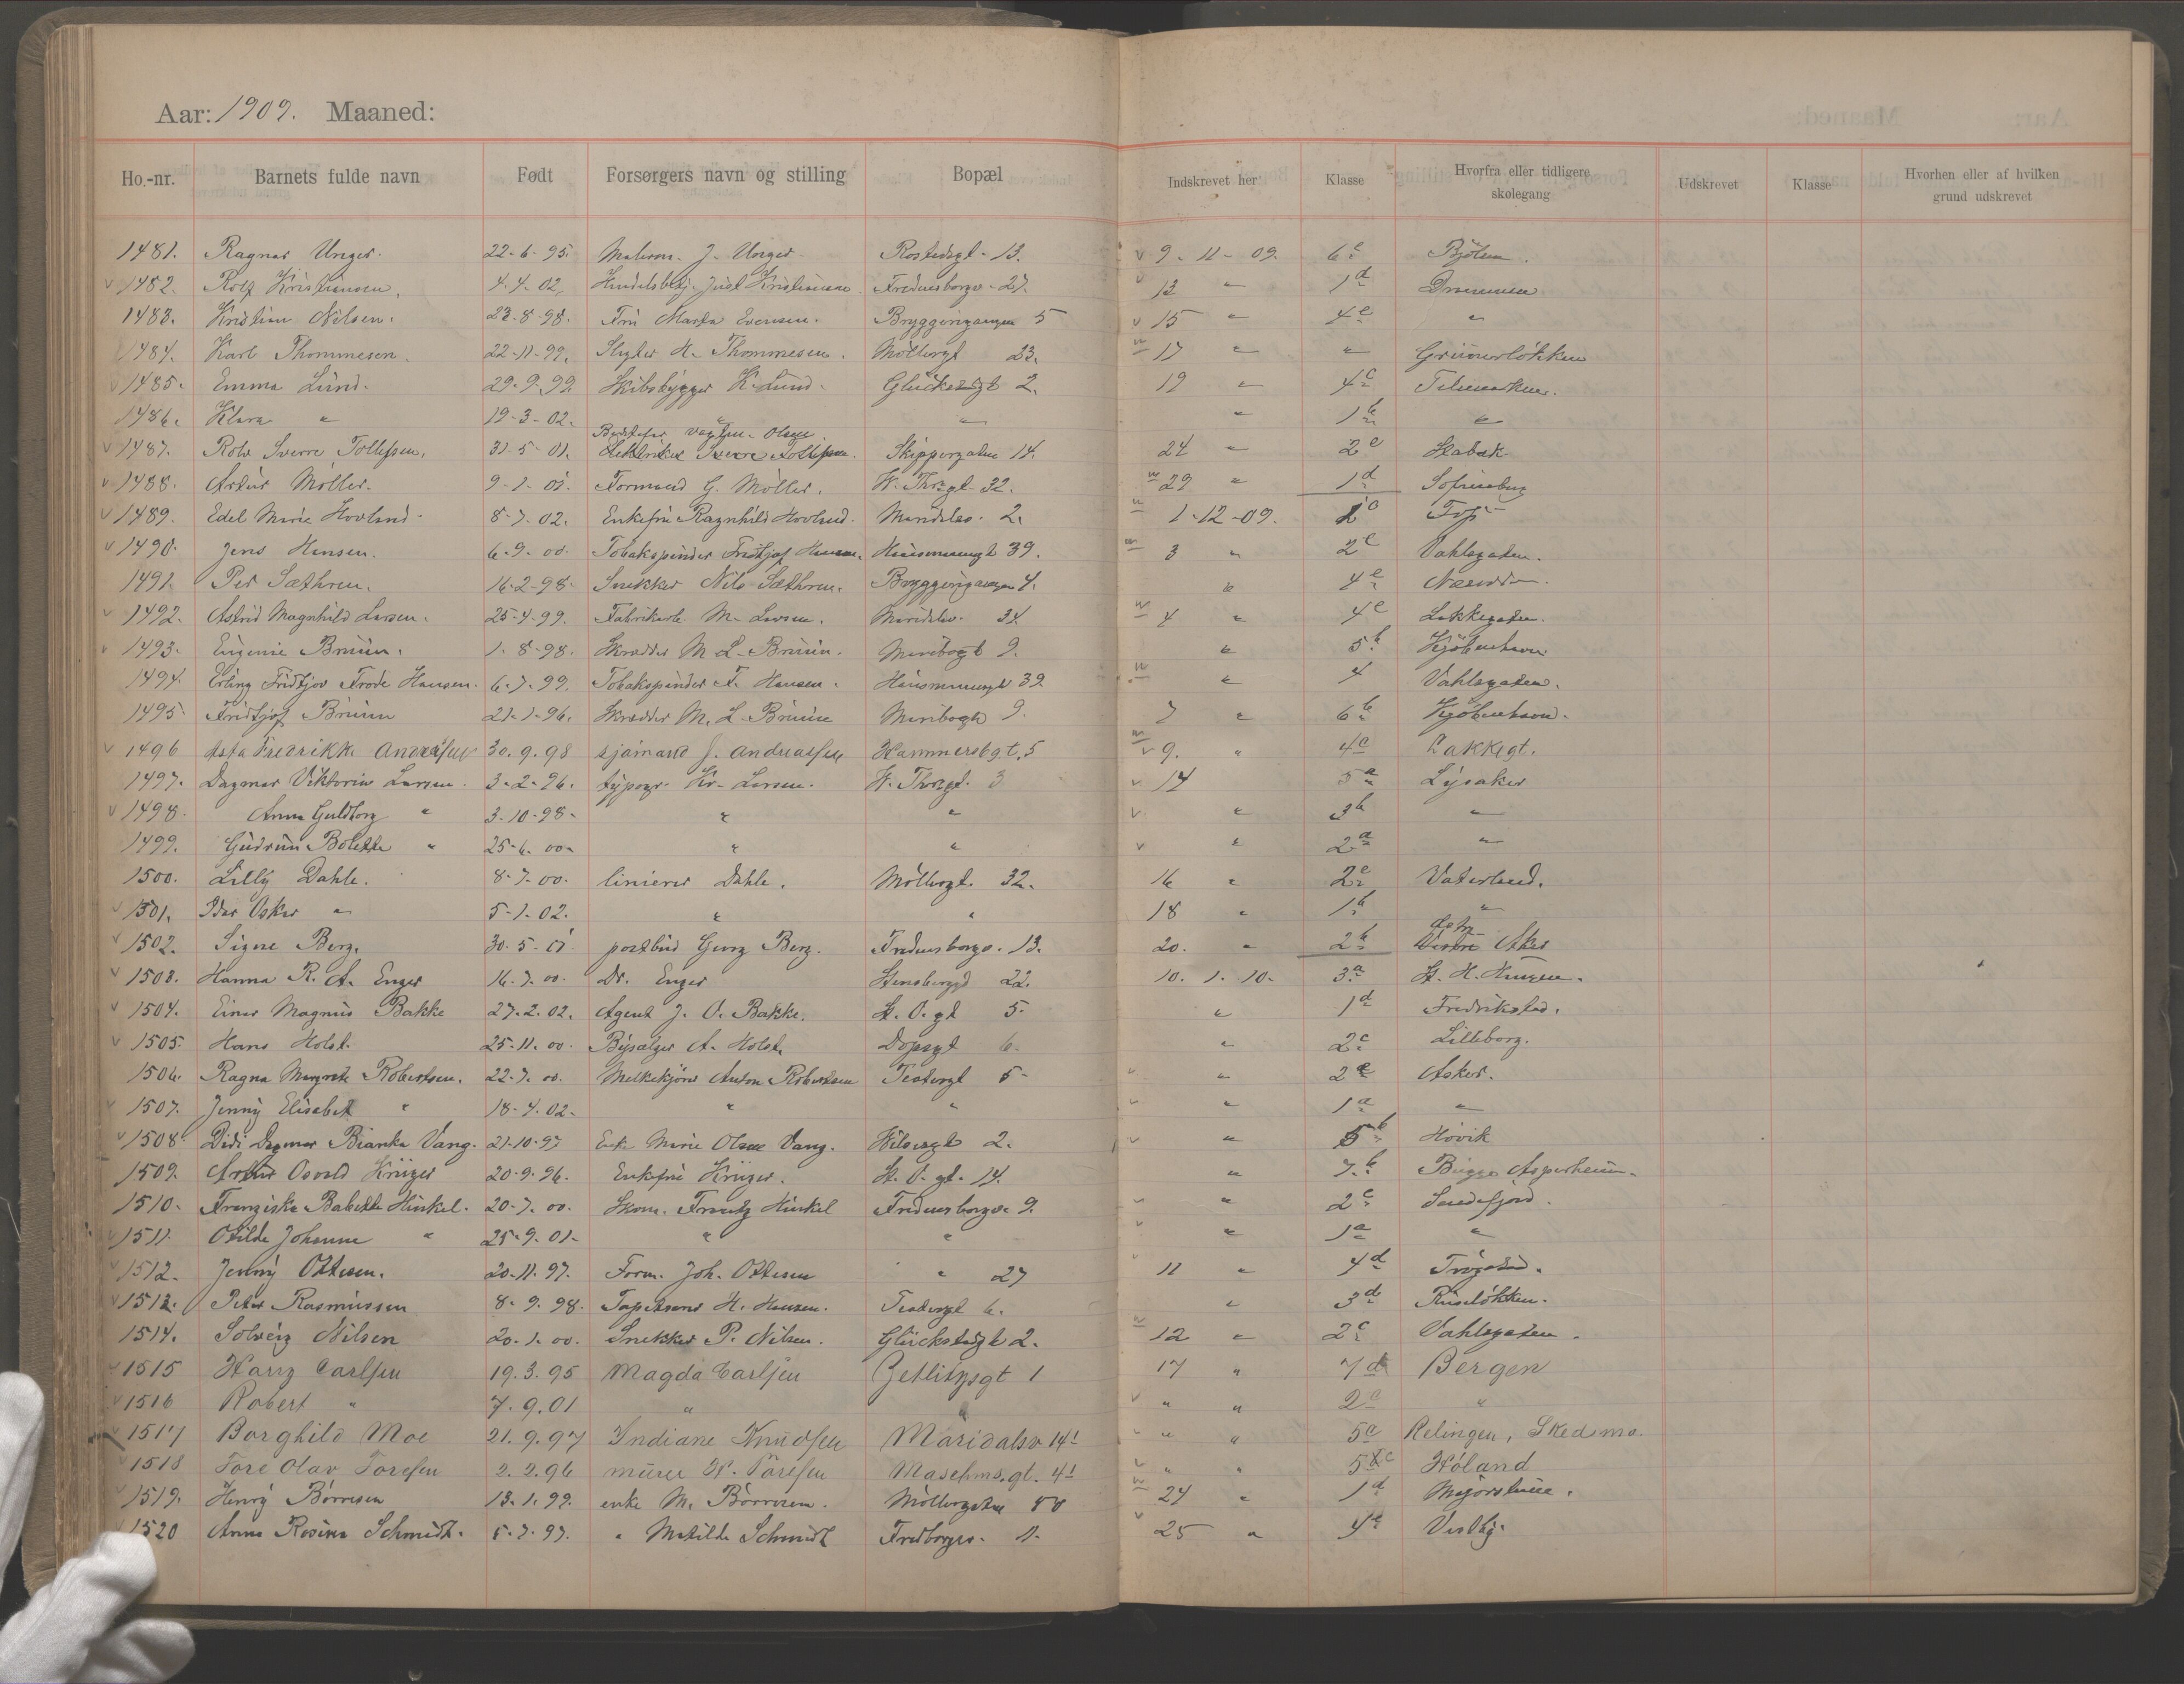 Aar: 1909. Maaned:
Ho.-nr. Barnets fulde navn Født Forsørgers navn og stilling Bopæl Indskrevet her Klasse Hvorfra eller tidligere skolegang Udskrevet Klasse Hvorhen eller af hvilken grund udskrevet
1481. Ragnar Unger. 22-6-95. J. Unger. Rostedsgt. 13. v 9-11-09. 6e
v 1482. Rolf Kristiansen. 4.4.02. Just Kristiansen. Fredensborgv. 27. v 13 " 1d Drammen
1483. Kristian Nilsen. 23-8-98. Fru Marta Evensen. Bryggerigangen 5 v 15 " 4e "
1484. Karl Thommesen. 22-11-99. Slagter H. Thommesen. Möllergt 23. 17 " " Grünerløkken
1485. Emma Lund. 29-9-99 Skibsbygger K. Lund. 2. 19 " 4c Telemarken.
1486. Klara " 19-3-02. " " " 1b "
v 1487. Rolv Sverre Tollefsen. 31-5-01. Bedstefar Olsen Sverre Tollefsen. Skippergaten 14. 24 " 2e Stabæk
v 1488. Artur Möller. 9-1-01. Formand G. Möller. W. Thrsgt. 32. 29 " 1d Sofienberg
v 1489. Edel Marie Hovland. 8-7-02. Enkefru Ragnhild Hovland. Maridalsv. 2. 1-12-09. 1c
v 1490. Jens Hansen. 6-9-00. Tobakspinder Fridtjof Hansen. Hausmannsgt 39. 3 " 2e Vahlsgaten.
1491. Per Sæthren. 16-2-98. Snekker Nils Sæthren. Bryggerigangen 4. " 4e
v 1492. Astrid Magnhild Larsen. 25-4-99. Fabrikarb. M. Larsen. Maridalsv. 34 4 " 4e Lakkegaten.
1493. Eugenie Bruun. 1-8-98. Skrædder M L. Bruun. Maribogt 9. " 5b Kjöbenhavn
1494. Erling Fridtjov Frode Hansen. 6-7-99. Tobakspinder F. Hansen. Hausmannsgt 39. " 4 Vahlsgaten.
1495 Fridtjof Bruun 21-1-96. Skrædder M. L. Bruun Maribogt 9. 7 " 6b Kjöbenhavn.
v 1496 Asta Fredrikke Andreasen 30.9.98 sjömand J. Andreassen Hammersbgt. 5 v 9. " 4c Lakkegt.
1497. Dagmar Viktoria Larsen. 3-2-96. typogr. Kr. Larsen. W. Thrsgt. 3 v 14 5a Lysaker
v 1498. Anna Guldborg " 3-10-98. " " v " 3b "
1499. Gudrun Bolette " 25-6-00. " " v " 2a "
1500. Lilly Dahle. 8-7-00. linierer Dahle. Möllergt. 32. 16 " 2e Vaterland.
v 1501. Oskar " 5-1-02. " " 18 " 1b "
v 1502. Signe Berg. 30-5-01 postbud Georg Berg. Fredensborgv. 13. 20. " 2b Aker
v 1503. Hanna R. A. Enger 16.7.00. Dr. Enger Stensberggt 22. 10.1.10. 3a St. H. Haugen.
v 1504. Einar Magnus Bakke 27.2.02. Agent J. O. Bakke. St. O. gt 5. " 1d Fredrikstad.
v 1505. Hans Holst. 25.11.00. A. Holst. Dopsgt 6. " 2c Lilleborg.
1506. Ragna Margrete Robertsen. 22.7.00. Melkekjörer Anton Robertsen Teatergt 5 " " 2e Asker.
v 1507. Jenny Elisabet " 18-4.02. " " " " 1a "
v 1508. Didi Dagmar Bianka Vang. 21-10-97 Enke Marie Olsen Vang. Wilsesgt 2. v " 5b Hövik
1509. Artur Osvald Krüger 20-9.96. Enkefru Krüger. St. O. gt. 14. " 7.b
1510. Franziska Babette Hinkel. 20-7.00. Skom. Frantz Hinkel Fredensborgv. 9. v " 2e Sandefjord.
v 1511. Otilde Johanne " 25-9.01. " " v " 1a "
v 1512. Jenny Ottesen. 20-11.97. Form. Joh. Ottesen " 27 11 " 4d Trögstad.
v 1513. Peter Rasmussen 8.9.98. H. Hansen. Teatergt 6. " 3d Ruselökken.
1514. Solveig Nilsen 20.1.00. Snekker P. Nilsen. Glückstadgt 2. 12 " 2c Vahlsgaten.
v 1515 Harry Carlsen 19.3.95 Magda Carlsen Zetlitzsgt 1 17 " 7d Bergen
v 1516 Robert " 7.9.01 " " v " " 2c "
1517 Borghild Moe 21.9.97 Indiane Knudsen Maridalsv 141 " " 5c Relingen, Skedsmo.
v 1518 Tore Olav Toresen 2.2.96 murer N. Toresen v " " 5c Höland
v 1519. Henry Börresen 13.1.99. enke M. Börresen. Möllergaten 24 " 1d Majorstuen.
1520 Anna Rosina Schmidt. 5-7.97. " Matilde Schmidt Fredborgv. 11. v 25 " 4e Vestby.